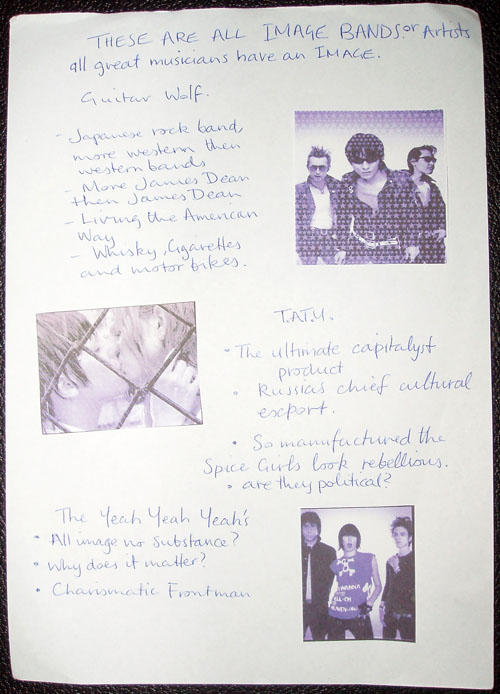 THESE ARE ALL IMAGE BANDS or Artists
all great musicians have an IMAGE.
Guitar Wolf.
- Japanese rock band,
more western then
western bands
- More James Dean
then James Dean
- Living the American
Way
- Whisky, Cigarettes
and motor bikes.
T.A.T.U.
• The ultimate capitalyst
product
• Russia's chief cultural
export.
• So manufactured the
Spice Girls look rebellious.
• are they political?
The Yeah Yeah Yeah's
• All image no substance?
• Why does it matter?
• Charismatic Frontman